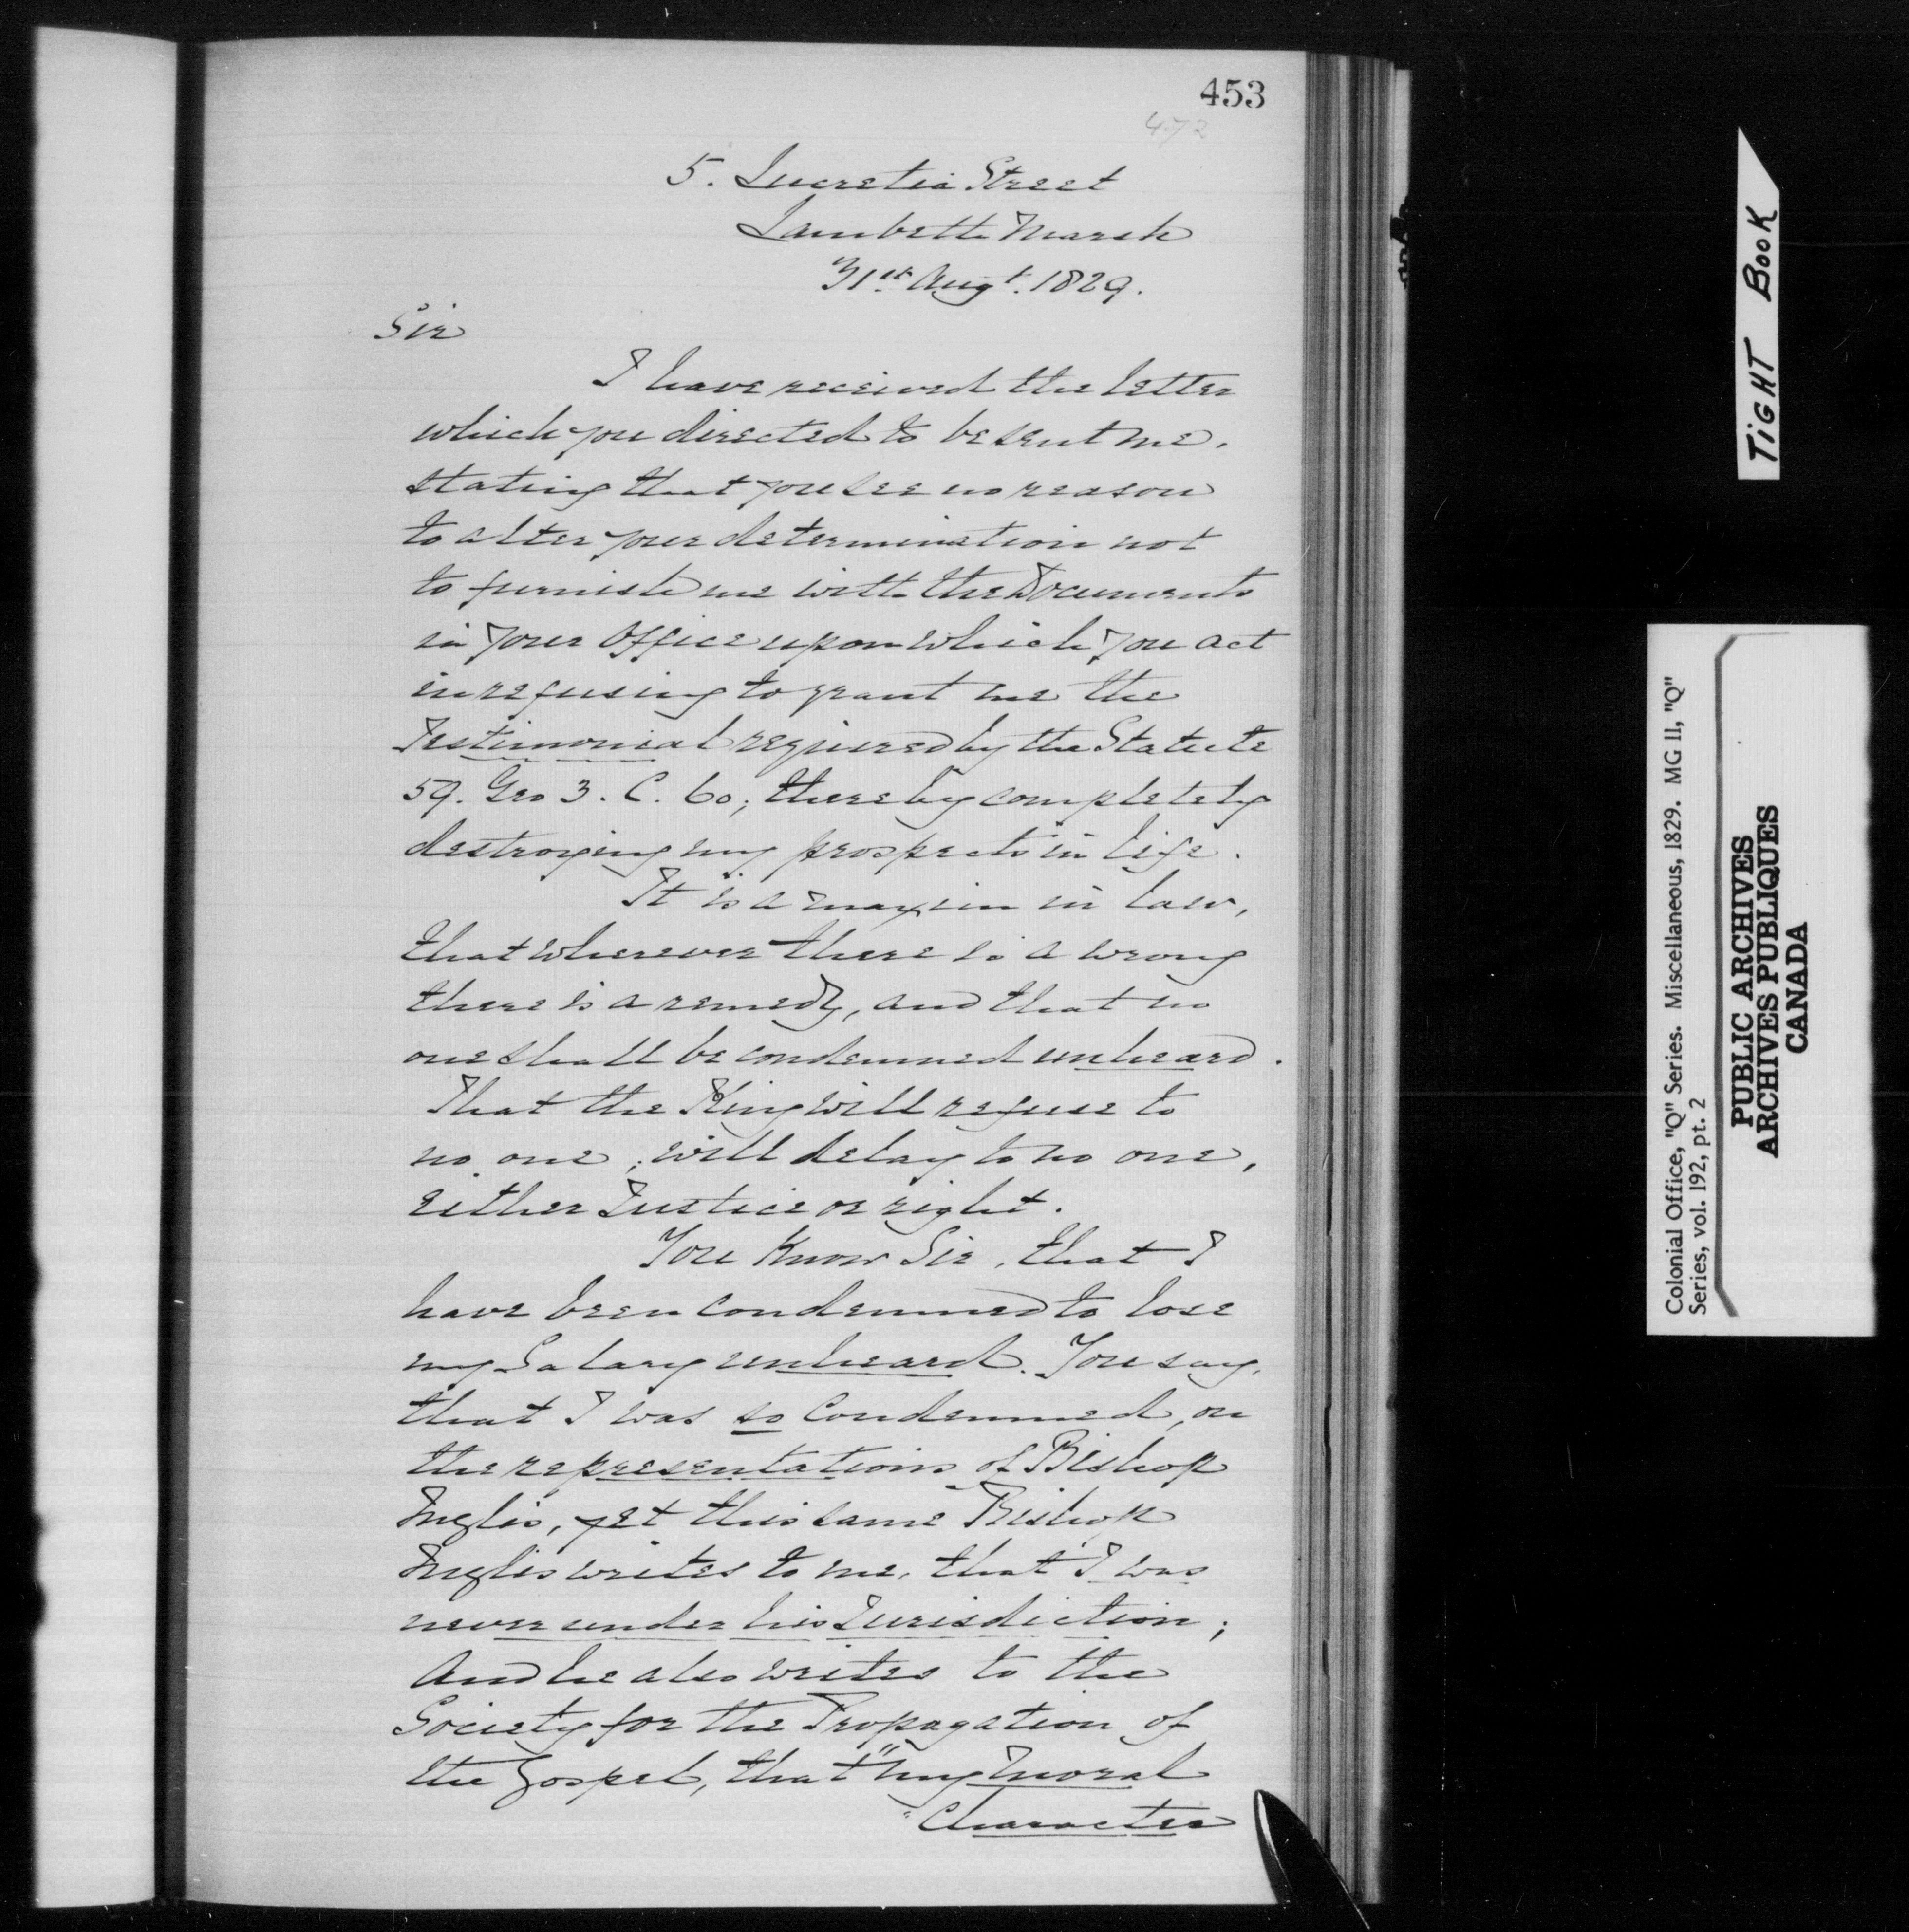 453
472
5. Lucretia Street
Lambeth Marsh
31st Augt. 1829.
Sir
I have received the letter
which you directed to be sent me,
stating that you see no reason
to alter your determination not
to furnish me with the Documents
in your Office upon which you act
in refusing to grant me the
Testimonial required by the Statute
59. Geo 3. C. 60; thereby completely
destroying my prospects in life.
It is a maxim in law,
that wherever there is a wrong
there is a remedy, and that no
one shall be condemned unheard.
That the King will refuse to
no one, will delay to no one,
either Justice or right.
You Know Sir, that I
have been condemned to lose
my Salary unheard. You say,
that I was so Condemned, on
the representations of Bishop
Inglis, yet this same Bishop
Inglis writes to me, that I was
never under his Jurisdiction;
And he also writes to the
Society for the Propagation of
the Gospel, that "my moral
"Character
TIGHT BOOK
Colonial Office, "Q" Series. Miscellaneous, 1829. MG 11, "Q"
Series, vol. 192, pt. 2
PUBLIC ARCHIVES
ARCHIVES PUBLIQUES
CANADA